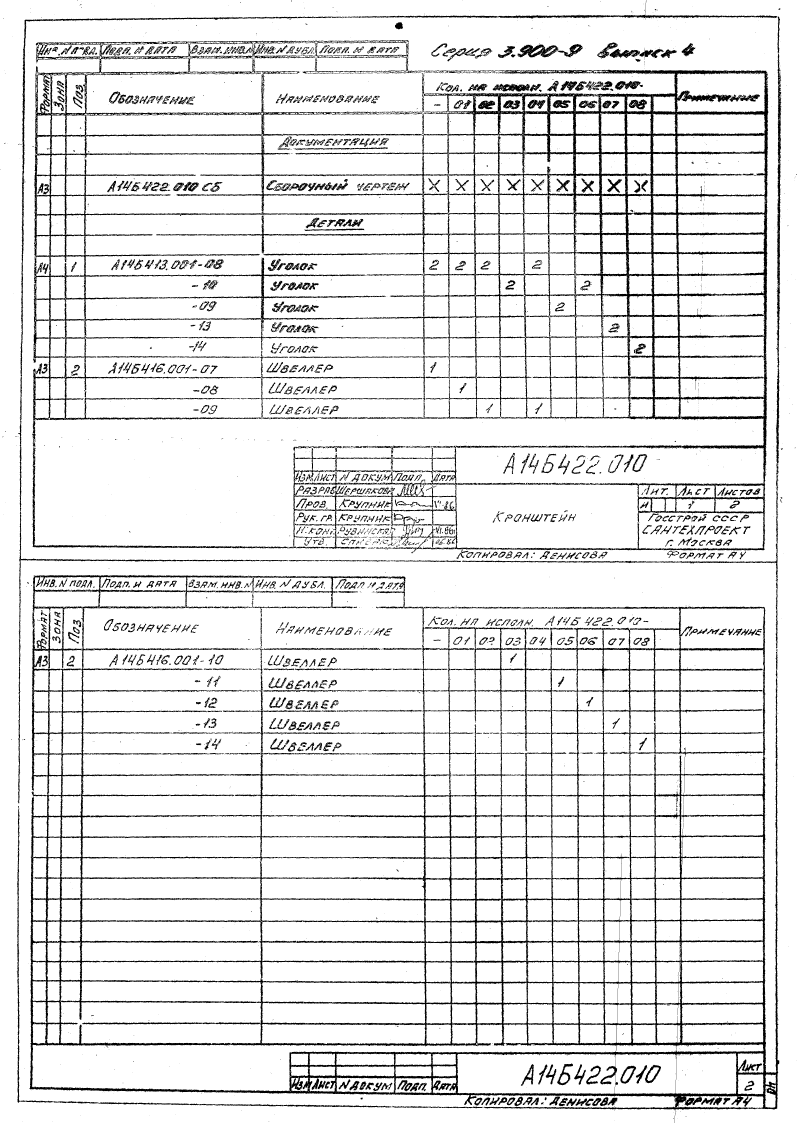 Серия 3.900-9 Выпуск 4
Инв. N подл. Подп. и дата Взам. инв. N Инв. N дубл. Подп. и дата
Формат Зона Поз Обозначение Наименование Кол. на исполн. А14Б422.010- Примечание
- 01 02 03 04 05 06 07 08
Документация
А3 А14Б422.010 СБ Сборочный чертеж X X X X X X X X X
Детали
А4 1 А14Б413.001-08 Уголок 2 2 2 2
-10 Уголок 2 2
-09 Уголок 2
-13 Уголок 2
-14 Уголок 2
А3 2 А14Б416.001-07 Швеллер 1
-08 Швеллер 1
-09 Швеллер 1 1
А14Б422.010
Изм Лист N докум Подп. Дата
Разраб Шершакова
Пров. Крупник
Рук. гр. Крупник
Н. конт. Рувинская
Утв.
Кронштейн
Лит. Лист Листов
И 1 2
Госстрой СССР
Сантехпроект
г. Москва
Копировал: Денисова Формат А4
Инв. N подл. Подп. и дата Взам. инв. N Инв. N дубл. Подп. и дата
Формат Зона Поз Обозначение Наименование Кол. на исполн. А14Б422.010- Примечание
- 01 02 03 04 05 06 07 08
А3 2 А14Б416.001-10 Швеллер 1
-11 Швеллер 1
-12 Швеллер 1
-13 Швеллер 1
-14 Швеллер 1
Изм Лист N докум Подп. Дата
А14Б422.010
Лист
2
Копировал: Денисова Формат А4